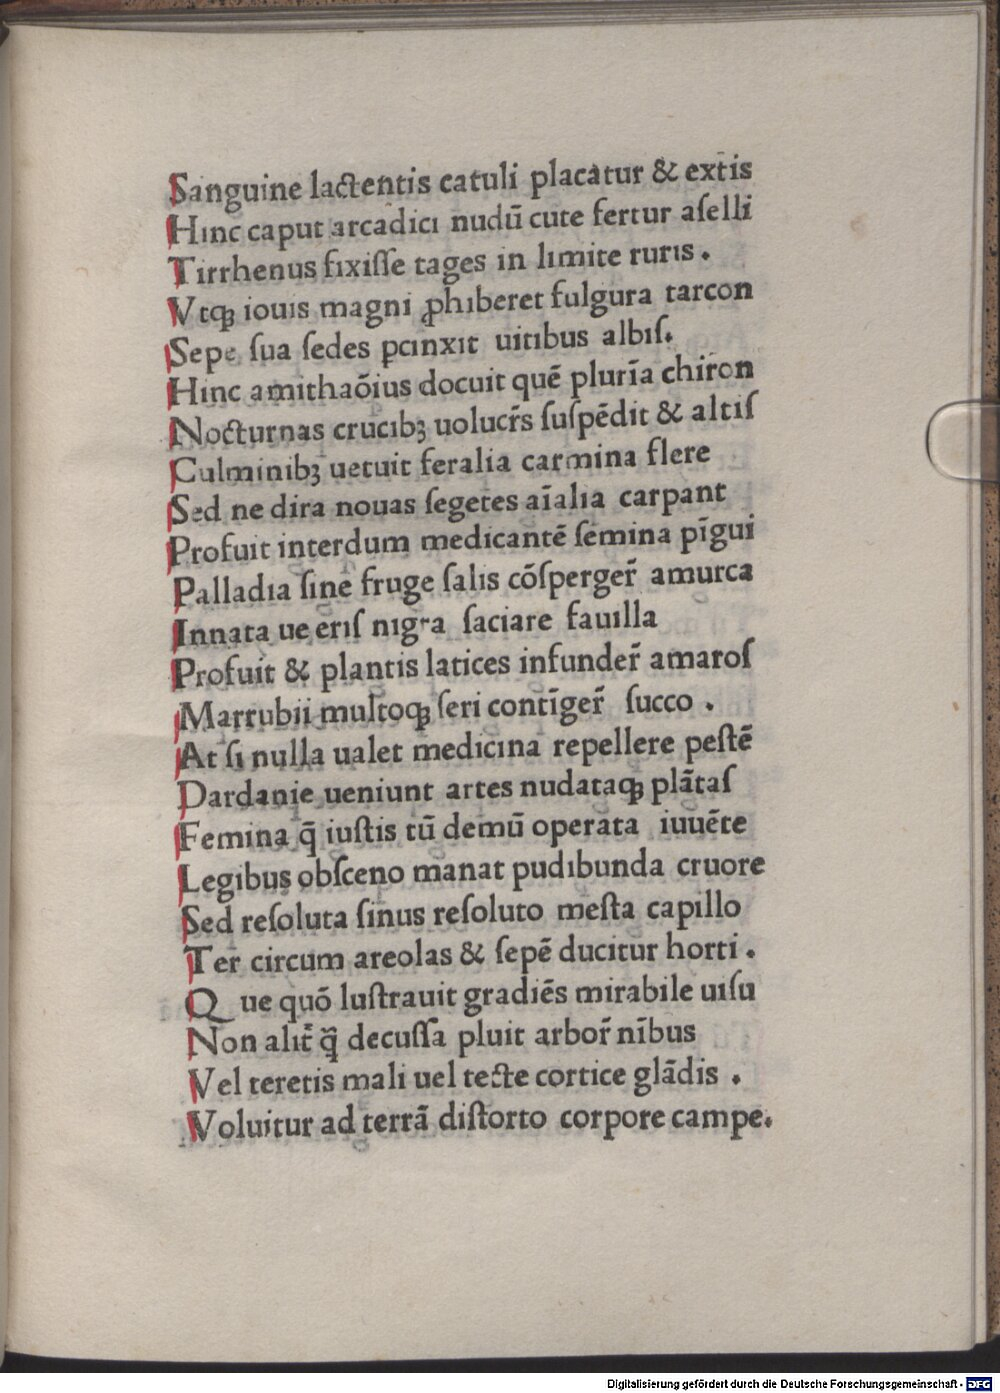 Sanguine lactentis catuli placatur & extis
Hinc caput arcadici nudū cute fertur aſelli
Tirrhenus fixiſſe tages in limite ruris .
Vtqꝫ iouis magni ꝓhiberet fulgura tarcon
Sepe ſua ſedes pcinxit uitibus albiſ.
Hinc amithaōius docuit quē plurīa chiron
Nocturnas crucibꝫ uolucr̄s ſuſpēdit & altiſ
Culminibꝫ uetuit feralia carmina flere
Sed ne dira nouas ſegetes aīalia carpant
Profuit interdum medicantē ſemina pīgui
Palladia ſine fruge ſalis cōſperger̄ amurca
Innata ue eriſ nigra ſaciare fauilla
Profuit & plantis latices infunder̄ amaroſ
Marrubii multoqꝫ ſeri contīger̄ ſucco .
At ſi nulla ualet medicina repellere peſtē
Dardanie ueniunt artes nudataqꝫ plātaſ
Femina q̄ iuſtis tū demū operata iuuēte
Legibus obſceno manat pudibunda cruore
Sed reſoluta ſinus reſoluto meſta capillo
Ter circum areolas & ſepē ducitur horti .
Que quō luſtrauit gradiēs mirabile uiſu
Non alit̄ q̄ decuſſa pluit arbor̄ nībus
Vel teretis mali uel tecte cortice glādis .
Voluitur ad terrā diſtorto corpore campe.
Digitalisierung gefördert durch die Deutsche Forschungsgemeinschaft - DFG